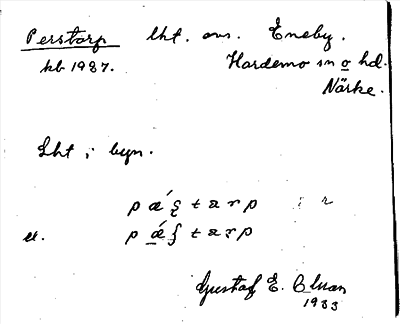 Perstorp lht. avs. Eneby.
kb 1937. Hardemo sn o hd.
Närke.
Lht i byn.
p ǽ ʂ t a r p i r
el. p ǽ ʃ t a r p
Gustaf E.
1933